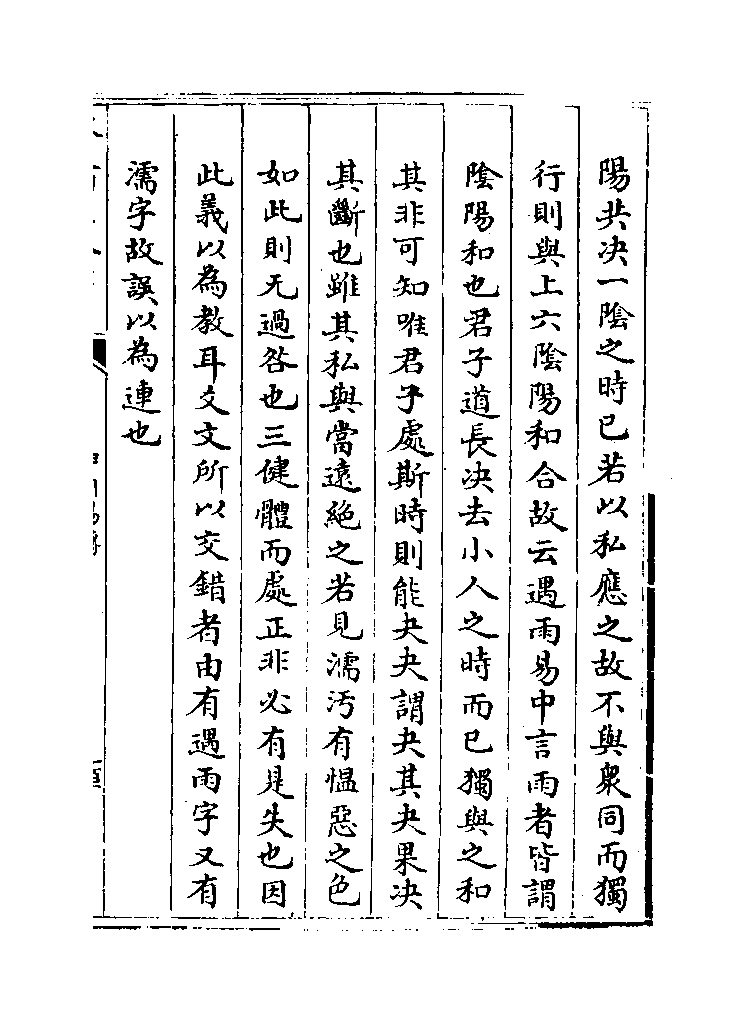 陽共决一陰之時已若以私應之故不與衆同而獨
行則與上六陰陽和合故云遇雨易中言雨者皆謂
陰陽和也君子道長决去小人之時而已獨與之和
其非可知唯君子處斯時則能夬夬謂夬其夬果决
其斷也雖其私與當遠絶之若見濡汚有愠惡之色
如此則无過咎也三健體而處正非必有是失也因
此義以為教耳爻文所以交錯者由有遇雨字又有
濡字故誤以為連也